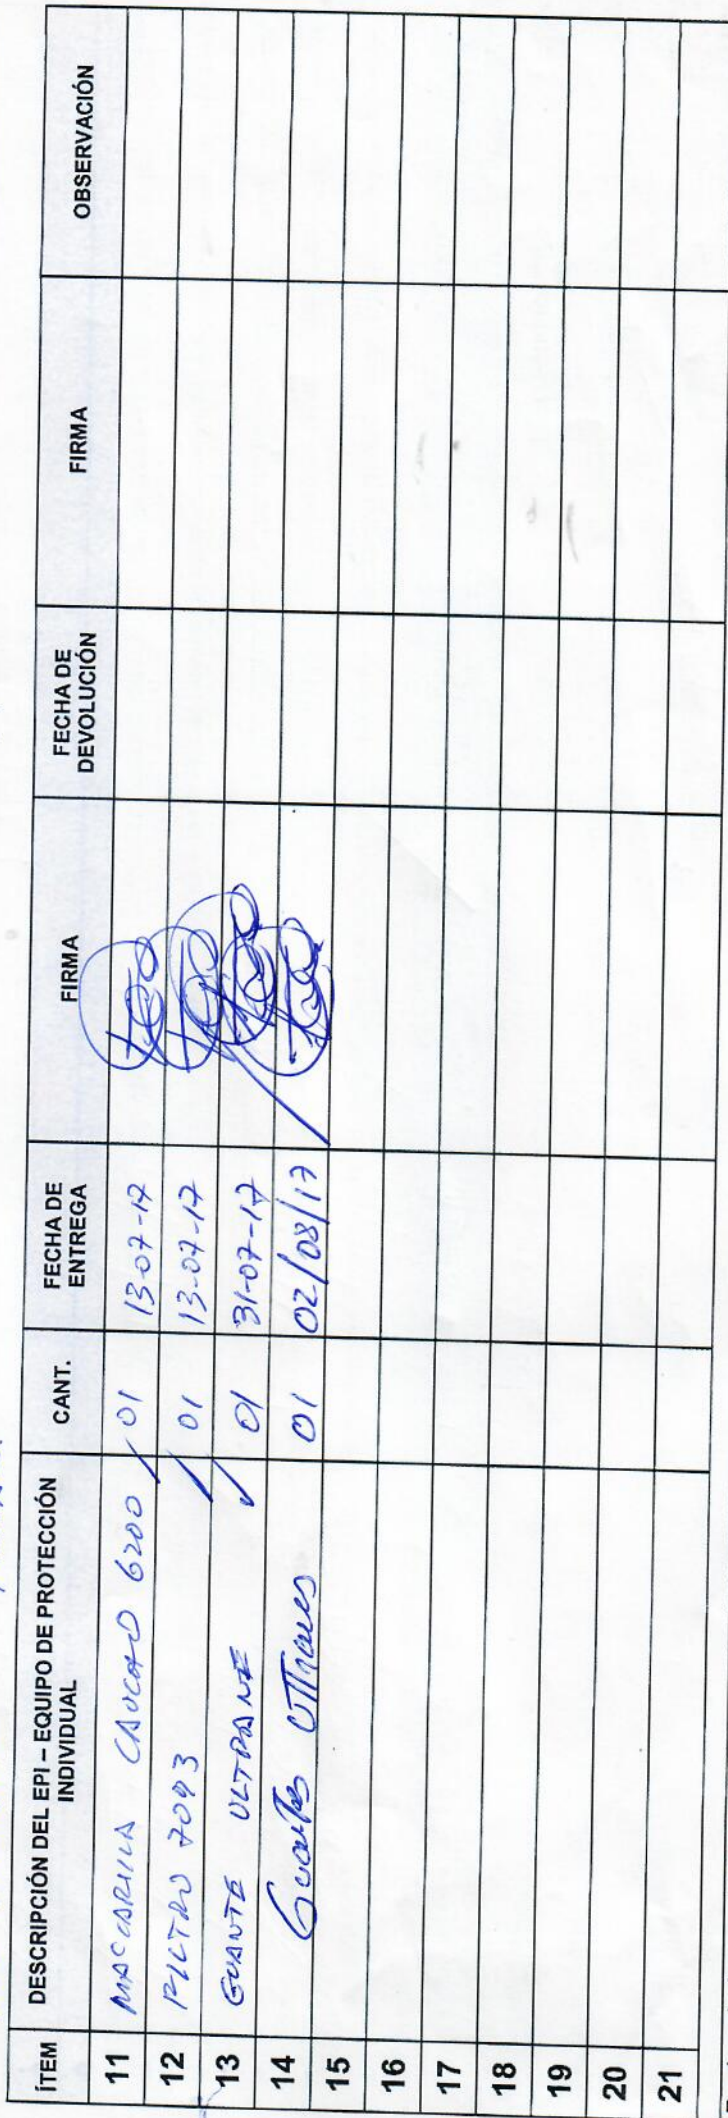 ÍTEM DESCRIPCIÓN DEL EPI – EQUIPO DE PROTECCIÓN INDIVIDUAL CANT. FECHA DE ENTREGA FIRMA FECHA DE DEVOLUCIÓN FIRMA OBSERVACIÓN
11 MASCARILLA CAUCHO 6200 01 13-07-17
12 FILTRO 7093 01 13-07-17
13 GUANTE ULTRANE 01 31-07-17
14 Guantes Ultranes 01 02/08/17
15
16
17
18
19
20
21